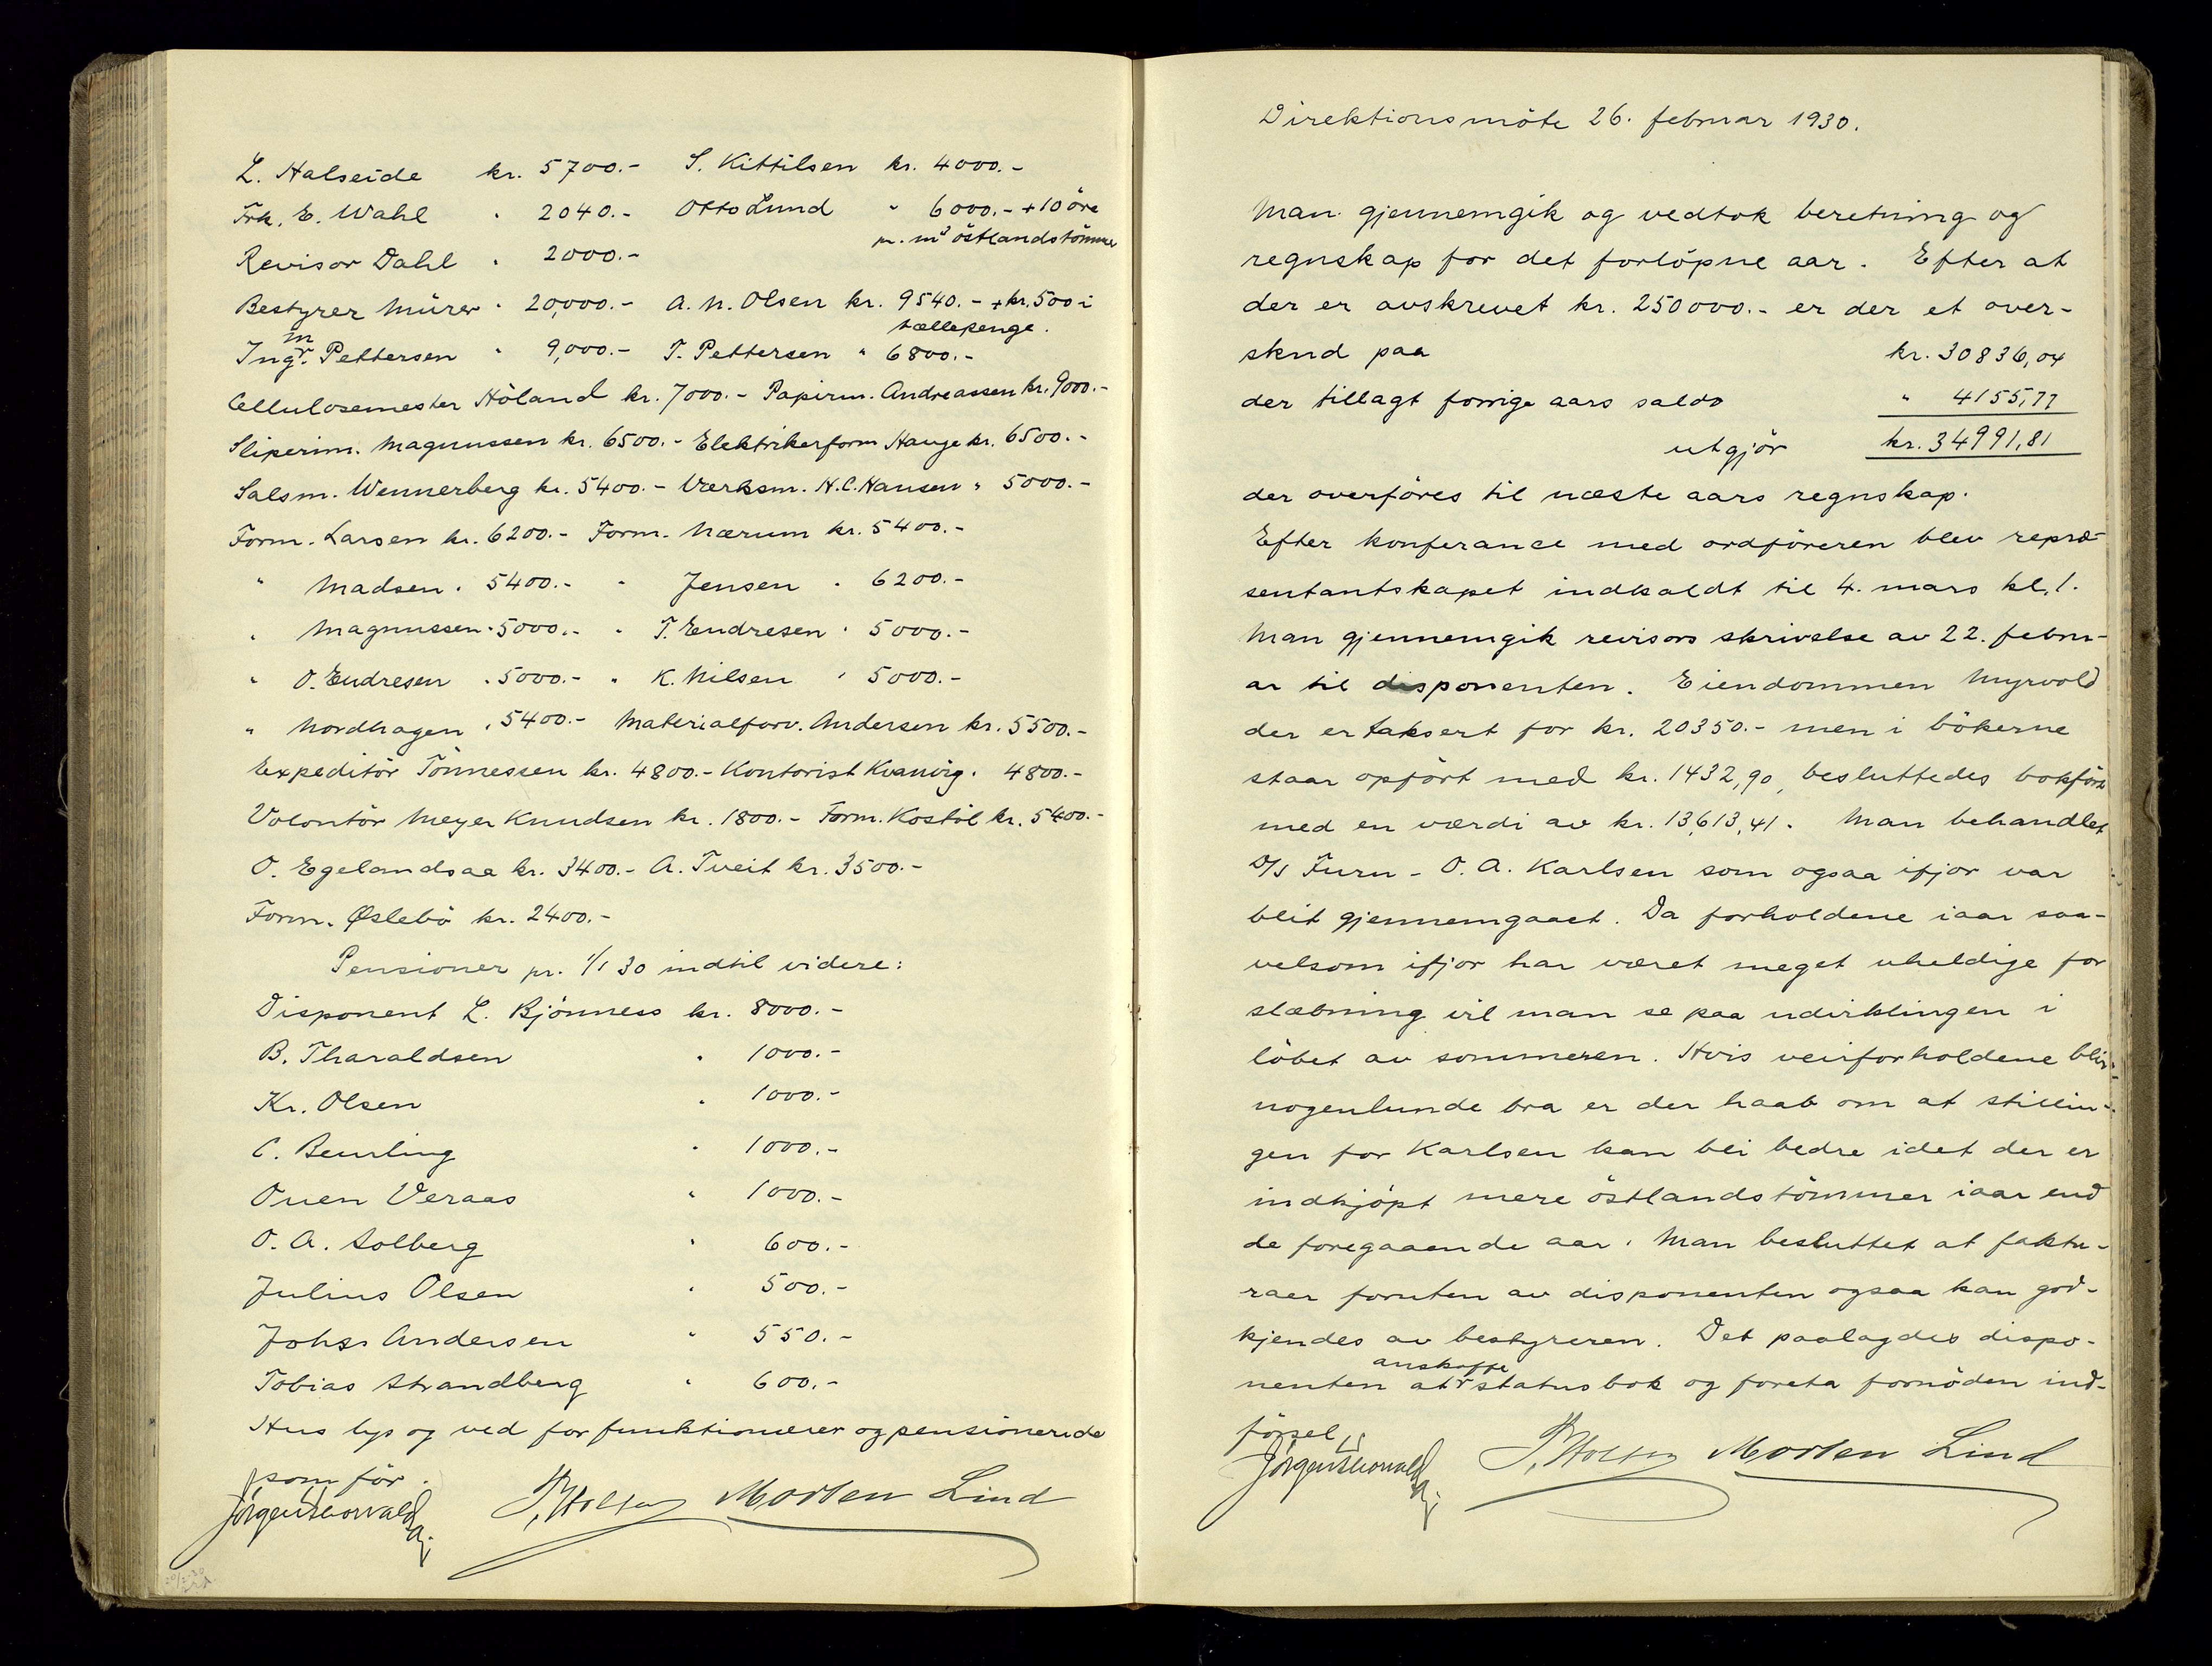 L. Halseide kr. 5700.- S. Kittilsen kr. 4000.-
Frk. E. Wahl " 2040.- Otto Lund " 6000.- + 10 öre
pr. m³ östlandstömmer
Revisor Dahl " 2000.-
Bestyrer Mürer " 20,000.- A. N. Olsen kr. 9540.- + kr. 500 i
tællepenge.
Ing. M Pettersen " 9,000.- T. Pettersen " 6800.-
Cellulosemester Höland kr. 7000.- Papirm. Andreassen kr. 9000.-
Sliperim. Magnussen kr. 6500.- Elektrikerform Hauge kr. 6500.-
Salsm. Wennerberg kr. 5400.- Værksm. H.C. Hansen " 5000.-
Form. Larsen kr. 6200.- Form. Nærum kr. 5400.-
" Madsen " 5400.- " Jensen " 6200.-
" Magnussen " 5000.- " T. Endresen " 5000.-
" O. Endresen " 5000.- " K. Nilsen " 5000.-
" Nordhagen " 5400.- Materialforv. Andersen kr. 5500.-
Expeditör Tönnessen kr. 4800.- Kontorist Kvanvig " 4800.-
Volontör Meyer Knudsen kr. 1800.- Form. Kostöl kr. 5400.-
O. Egelandsaa kr. 3400.- A. Tveit kr. 3500.-
Form. Øslebö kr. 2400.-
Pensioner pr. 1/1 30 indtil videre:
Disponent L. Bjönness kr. 8000.-
B. Tharaldsen " 1000.-
Kr. Olsen " 1000.-
C. Beurling " 1000.-
Ouen Veraas " 1000.-
O. A. Solberg " 600.-
Julius Olsen " 500.-
Johs. Andersen " 550.-
Tobias Strandberg " 600.-
Hus lys og ved for funktionærer og pensionerede
som för.
Morten Lind
Direktionsmöte 26. februar 1930.
Man gjennemgik og vedtok beretning og
regnskap for det forlöpne aar. Efter at
der er avskrevet kr. 250000.- er der et over-
skud paa kr. 30836,04
der tillagt forrige aars saldo " 4155,77
utgjör kr. 34991,81
der overföres til næste aars regnskap.
Efter konferance med ordföreren blev repræ-
sentantskapet indkaldt til 4. mars kl. 1.
Man gjennemgik revisors skrivelse av 22. febru-
ar til disponenten. Eiendommen Myrvold
der er taksert for kr. 20350.- men i bökerne
staar opfört med kr. 1432,90, besluttedes bokfört
med en værdi av kr. 13,613,41. Man behandlet
D/S Furu - O. A. Karlsen som ogsaa ifjor var
blit gjennemgaaet. Da forholdene iaar saa-
velsom ifjor har været meget uheldige for
slæbning vil man se paa udviklingen i
löbet av sommeren. Hvis veirforholdene blir
nogenlunde bra er der haab om at stillin-
gen for Karlsen kan bli bedre idet der er
indkjöpt mere östlandstömmer iaar end
de foregaaende aar. Man besluttet at faktu-
raer foruten av disponenten ogsaa kan god-
kjendes av bestyreren. Det paalagdes dispo-
anskaffe
nenten at statusbok og foreta fornöden ind-
försel
Morten Lind